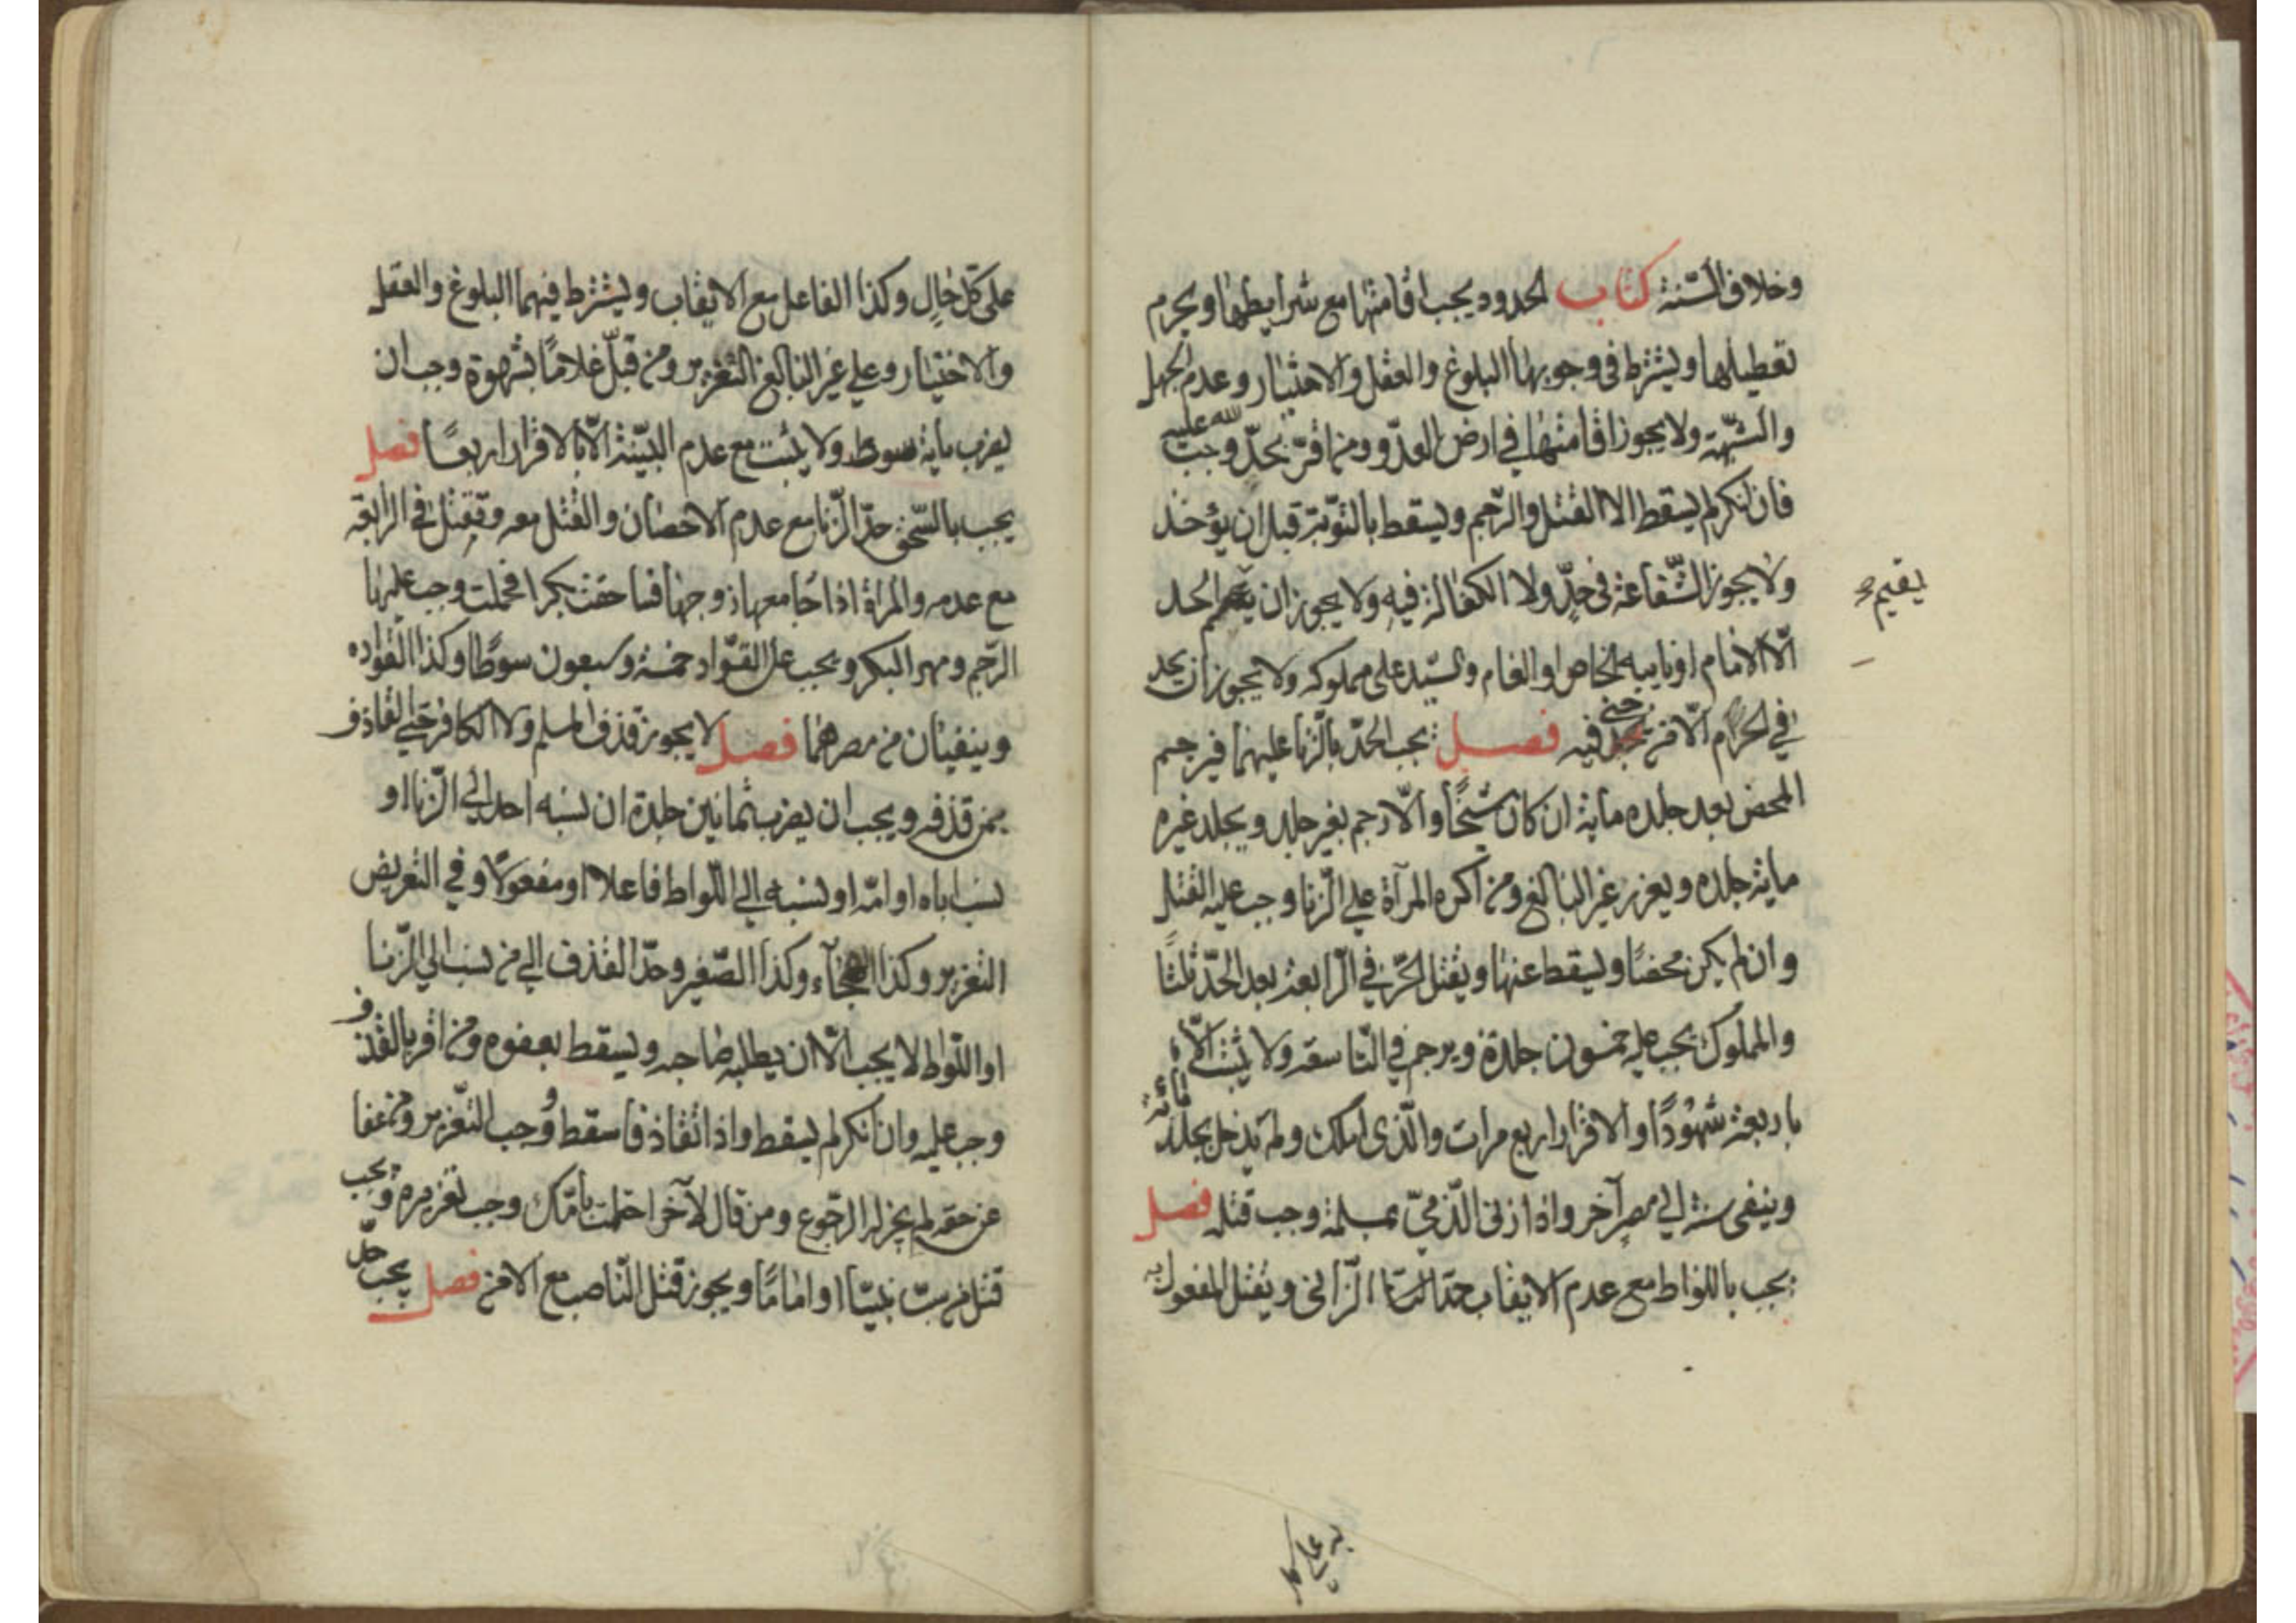 وخلاف السّنة كتاب الحدود يجب اقامتها مع شرايطها ويحرم
تعطيلها ويشترط في وجوبها البلوغ والعقل والاختيار وعدم الجهل
والشّبهة ولا يجوز اقامتها في ارض العدّو ومن اقرّ بحدّ لله وجب عليه
فان انكر لم يسقط الا القتل والرّجم ويسقط بالتّوبة قبل ان يؤخذ
ولا يجوز الشّفاعة في حدّ ولا الكفالة فيه ولا يجوز ان يقيم الحد
يقيم
الّا الامام او نايبه الخاص او العام والسّيد على مملوكه ولا يجوز ان يحد
في الحرام الّا من جنى فيه فصل يجب الحدّ بالزّنا عليهما فيرجم
المحصن بعد جلده ماية ان كان شيخًا والّا رجم بغير جلد ويجلد غيره
ماية جلده ويعزر غير البالغ ومن اكره المرآة على الزّنا وجب عليه القتل
وان لم يكن محصنًا ويسقط عنها ويقتل الحرّ في الرّابعة بعد الحدّ ثلثًا
والمملوك يجب عليه خمسون جلدة ويرجم في التّاسعة ولا يثبت الّا
باربعة شهودًا او الاقرار اربع مرات والّذى املك ولم يدخل يجلد مائة
وينفى سنة الى مصر آخر واذا زنى الذّميّ بمسلمة وجب قتله فصل
يجب باللواط مع عدم الايقاب حدّ الزّانى ويقتل المفعول به
به على كل
على كلّ حالٍ وكذا الفاعل مع الايقاب ويشترط فيهما البلوغ والعقل
والاختيار وعلى غير البالغ التعزير ومن قبّل غلامًا بشهوة وجب ان
يضرب ماية سوط ولا يثبت مع عدم البيّنة الّا بالاقرار اربعًا فصل
يجب بالسّحق حدّ الزّنا مع عدم الاحصان والقتل معه وتقتل في الرّابعة
مع عدمه والمراة اذا جامعها زوجها فساحقت بكرا فحملت وجب عليها
الرّجم ومهر البكر ويجب على القوّاد خمسة وسبعون سوطًا وكذا القوّاده
وينفيان من مصرهما فصل لا يجوز قذف المسلم ولا الكافر حتى القاذف
بمن قذفه ويجب ان يضرب ثمانين جلدة ان نسبه احد الى الزّنا او
نسب اباه او امّه او نسبه الى اللّواط فاعلا او مفعولًا وفي التعريض
التعزير وكذا الهجاء وكذا الصّغير وحدّ القذف الى من نسب الى الزّنا
او اللّواط لا يجب الّا ان يطلبه صاحبه ويسقط بعفوه ومن اقر بالقذف
وجب عليه وان انكر لم يسقط واذا تقاذفا سقط ووجب التّعزير ومن عفا
عن حقه لم يجز له الرّجوع ومن قال لآخر احتلمت بامّك وجب تعزيره ويجب
قتل من سبّ نبيّا او امامًا ويجوز قتل النّاصب مع الامن فصل يجب حدّ